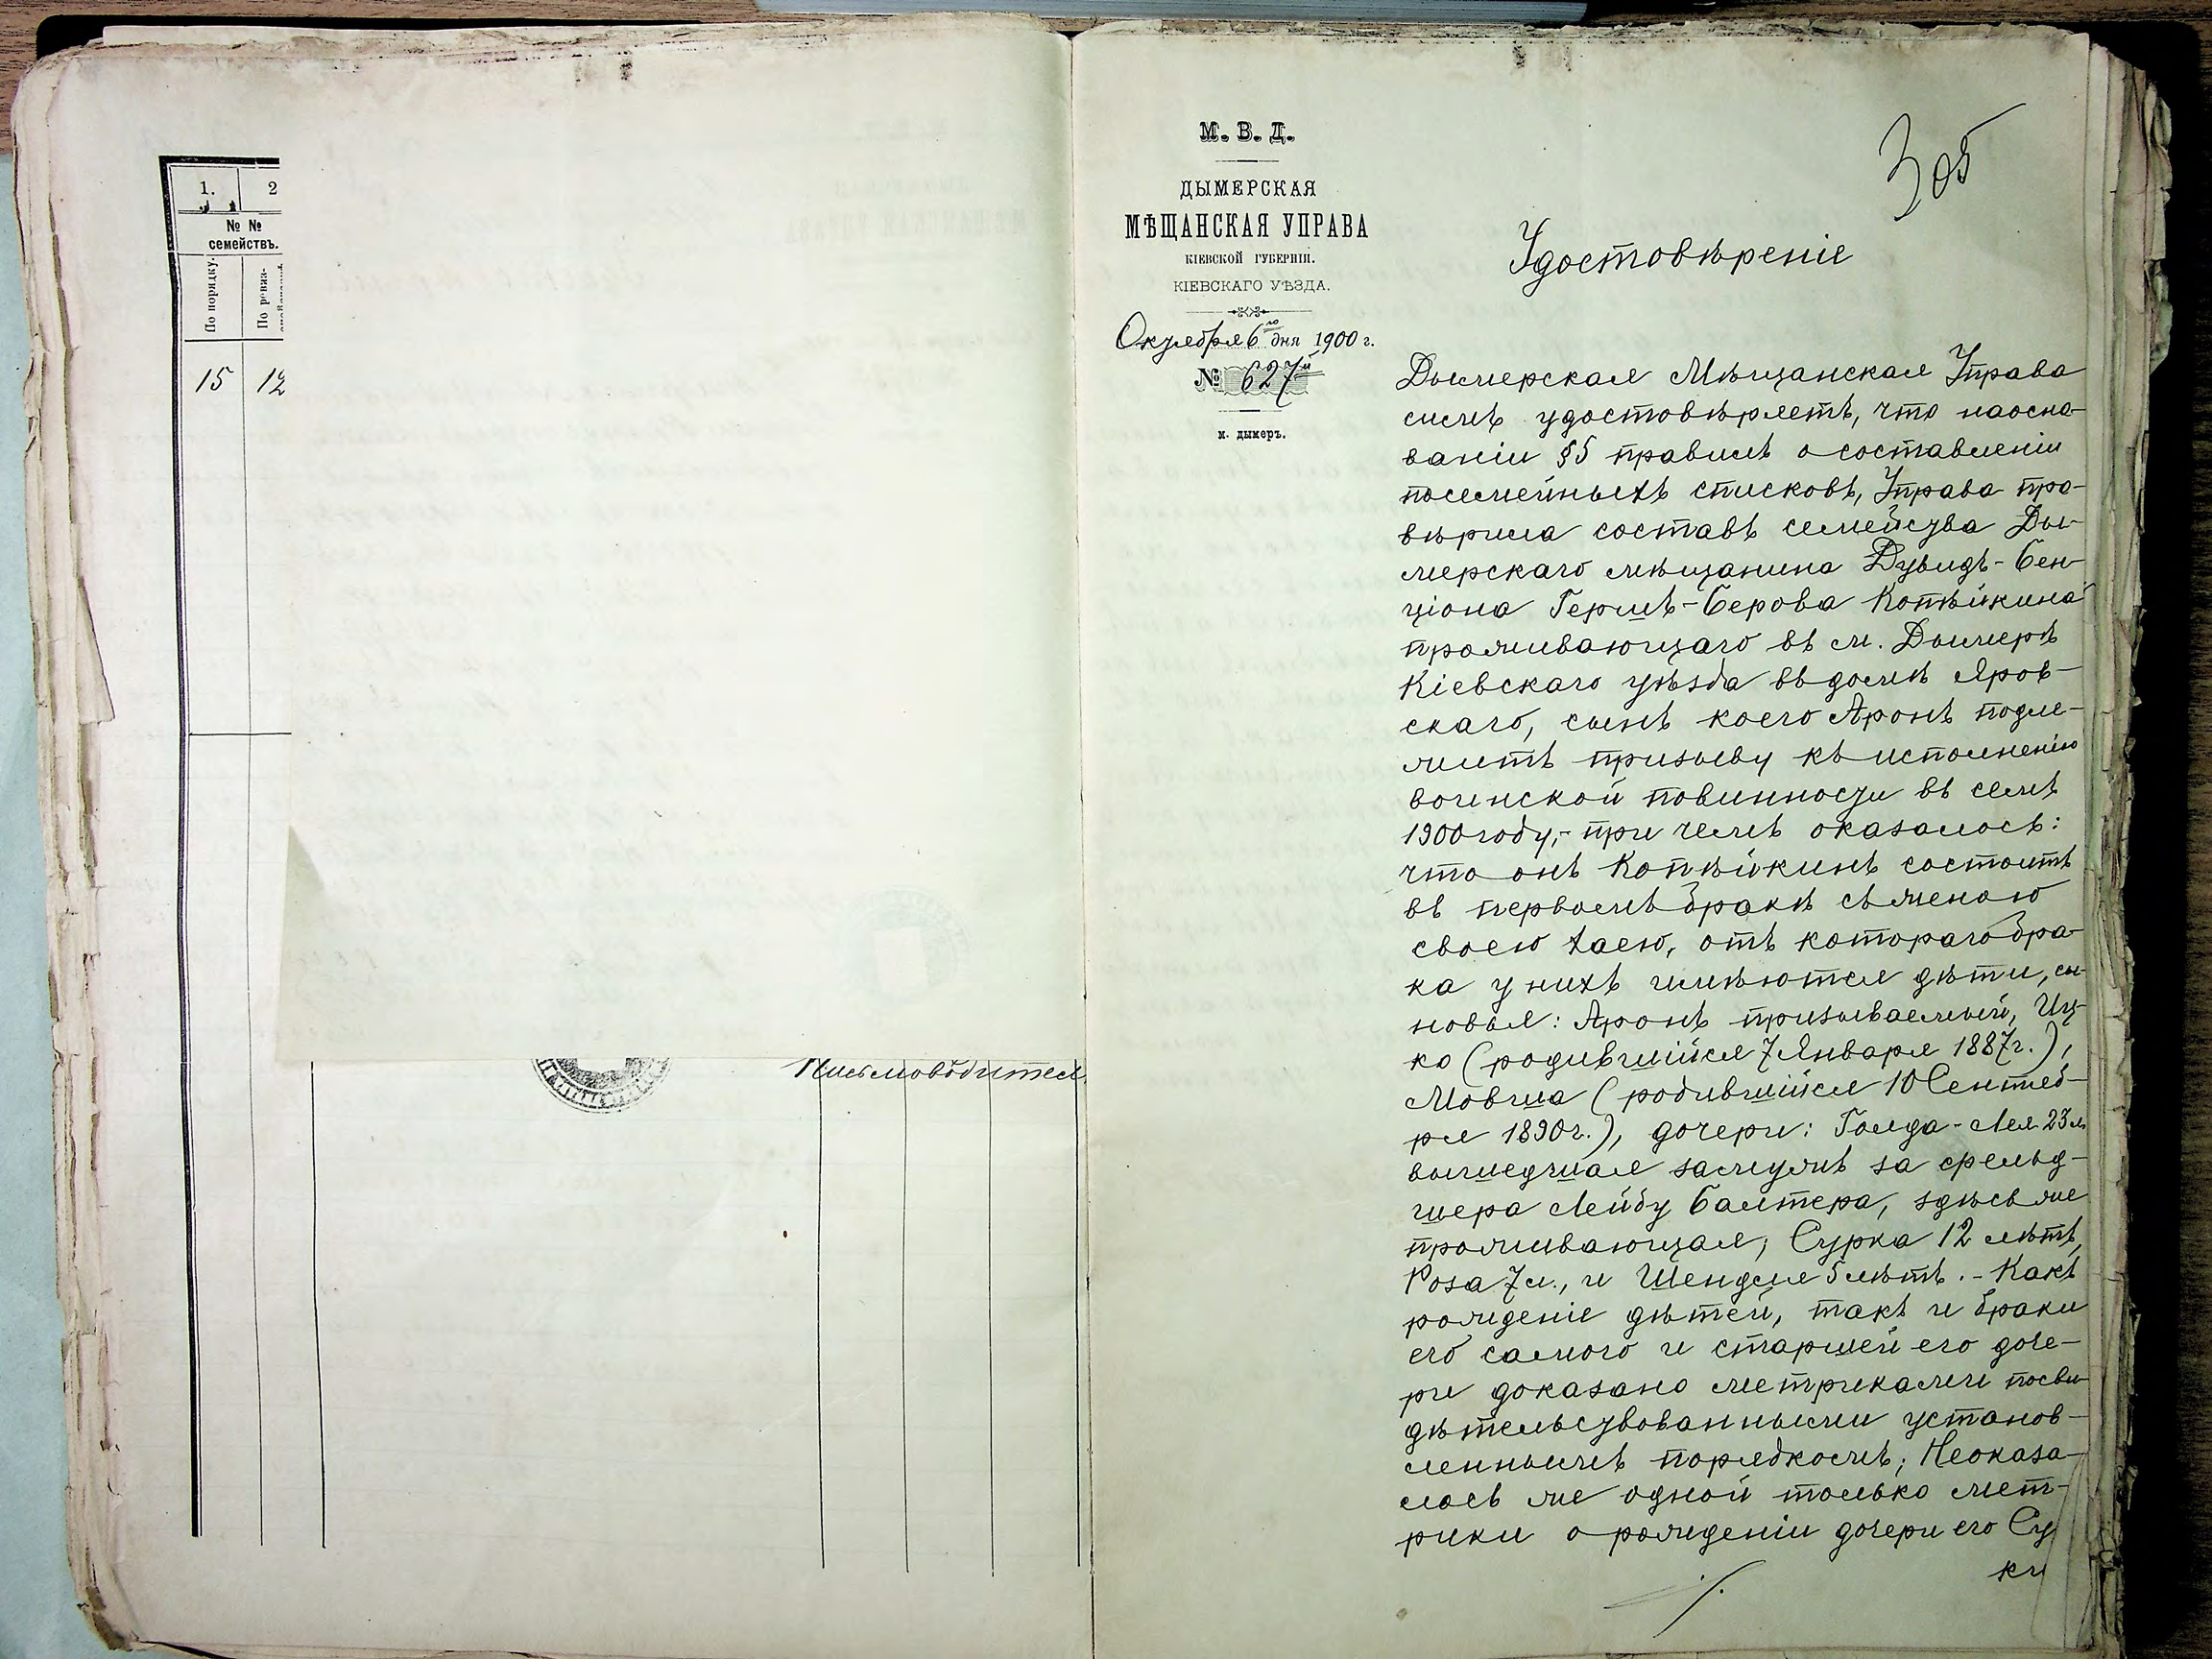 1. 2
№ №
семействъ.
По порядку.
По ревиз-
15 12
Письмоводител
М. В. Д.
ДЫМЕРСКАЯ
МѢЩАНСКАЯ УПРАВА
КІЕВСКОЙ ГУБЕРНІИ.
КІЕВСКАГО УѢЗДА.
Октября 6го дня 1900 г.
№ 627й
м. дымеръ.
305
Удостовѣреніе
Дымерская Мѣщанская Управа
симъ удостовѣряетъ, что наосно-
ваніи §5 правилъ о составленіи
посемейныхъ списковъ, Управа про-
вѣрила составъ семейства Ды-
мерскаго мѣщанина Дувидъ-Бен-
ціона Гершъ-Берова Копѣйкина
проживающаго въ м. Дымерѣ
Кіевскаго уѣзда въ домѣ Яров-
скаго, сынъ коего Аронъ подле-
житъ призыву къ исполненію
воинской повинности въ семъ
1900 году,- при чемъ оказалось:
что онъ Копѣйкинъ состоитъ
въ первомъ бракѣ съ женою
своею Хаею, отъ котораго бра-
ка у нихъ имѣются дѣти, сы-
новья: Аронъ призываемый, Иц-
ко (родившійся 7 Января 1887г.),
Мовша (родившійся 10 Сентяб-
ря 1890г.), дочери: Голда-Лея 23 л
вышедшая замужъ за фельд-
шера Лейбу Балтера, здѣсь же
проживающая; Сурка 12 лѣтъ,
Роза 7 л., и Шендля 5 лѣтъ. - Какъ
рожденіе дѣтей, такъ и браки
его самого и старшей его доче-
ри доказано метриками посви-
дѣтельствованными установ-
леннымъ порядкомъ; Неоказа-
лось же одной только мет-
рики о рожденіи дочери его Су
ки